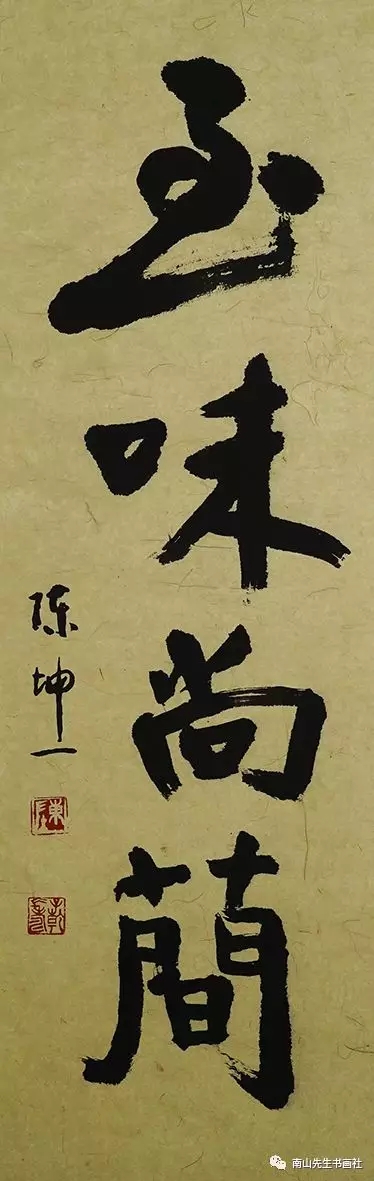 至味尚簡
陈坤一
南山先生书画社